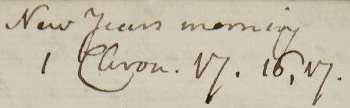 New Years morning
1 Chron. 17. 16, 17.